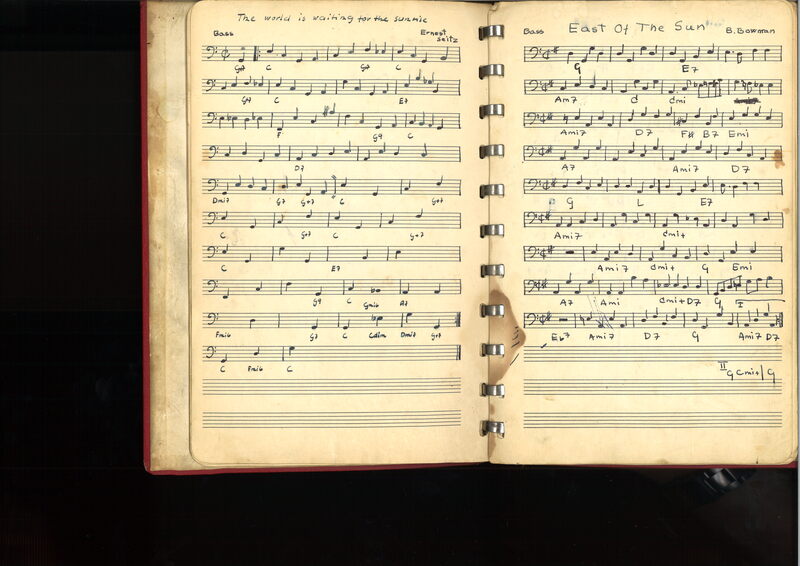 The world is waiting for the sunrise
Bass
Ernest
Seitz
G7 C G7 C
G7 C E7
F G9 C
D7
Dmi7 G7 G+7 C G+7
C G+7 C G+7
C E7
G9 C Gmi6 A7
Fmi6 G7 C Cdim Dmi7 G+7
C Fmi6 C
Bass East Of The Sun B. Bowman
G E7
Am7 d dmi
Ami7 D7 F# B7 Emi
A7 Ami7 D7
G L E7
Ami7 cmi+
Ami7 cmi+ G Emi
A7 Ami cmi+ D7 G I
Eb7 Ami7 D7 G Ami7 D7
II G Cmi+ G